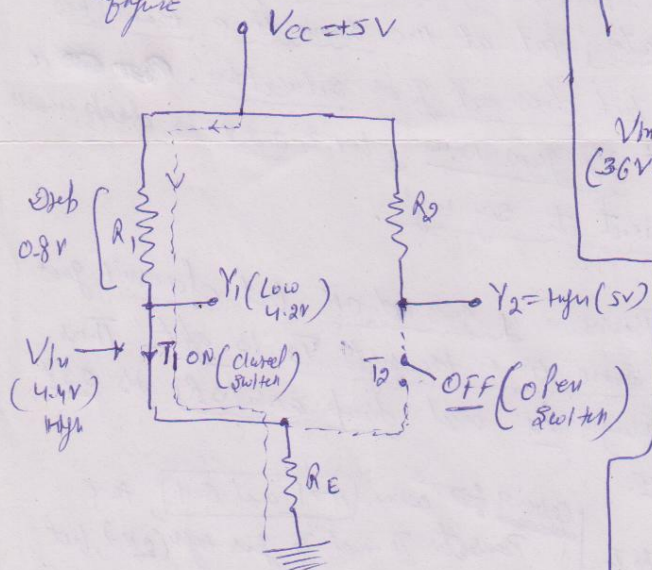 figure
VCC = +5V
Drop
0.8V
R1
R2
Y1 (Low
4.2V)
Y2 = High (5V)
VIn
(4.4V)
High
T1 ON (Closed
Switch)
T2
OFF (Open
Switch)
RE
VIn
(3.6V